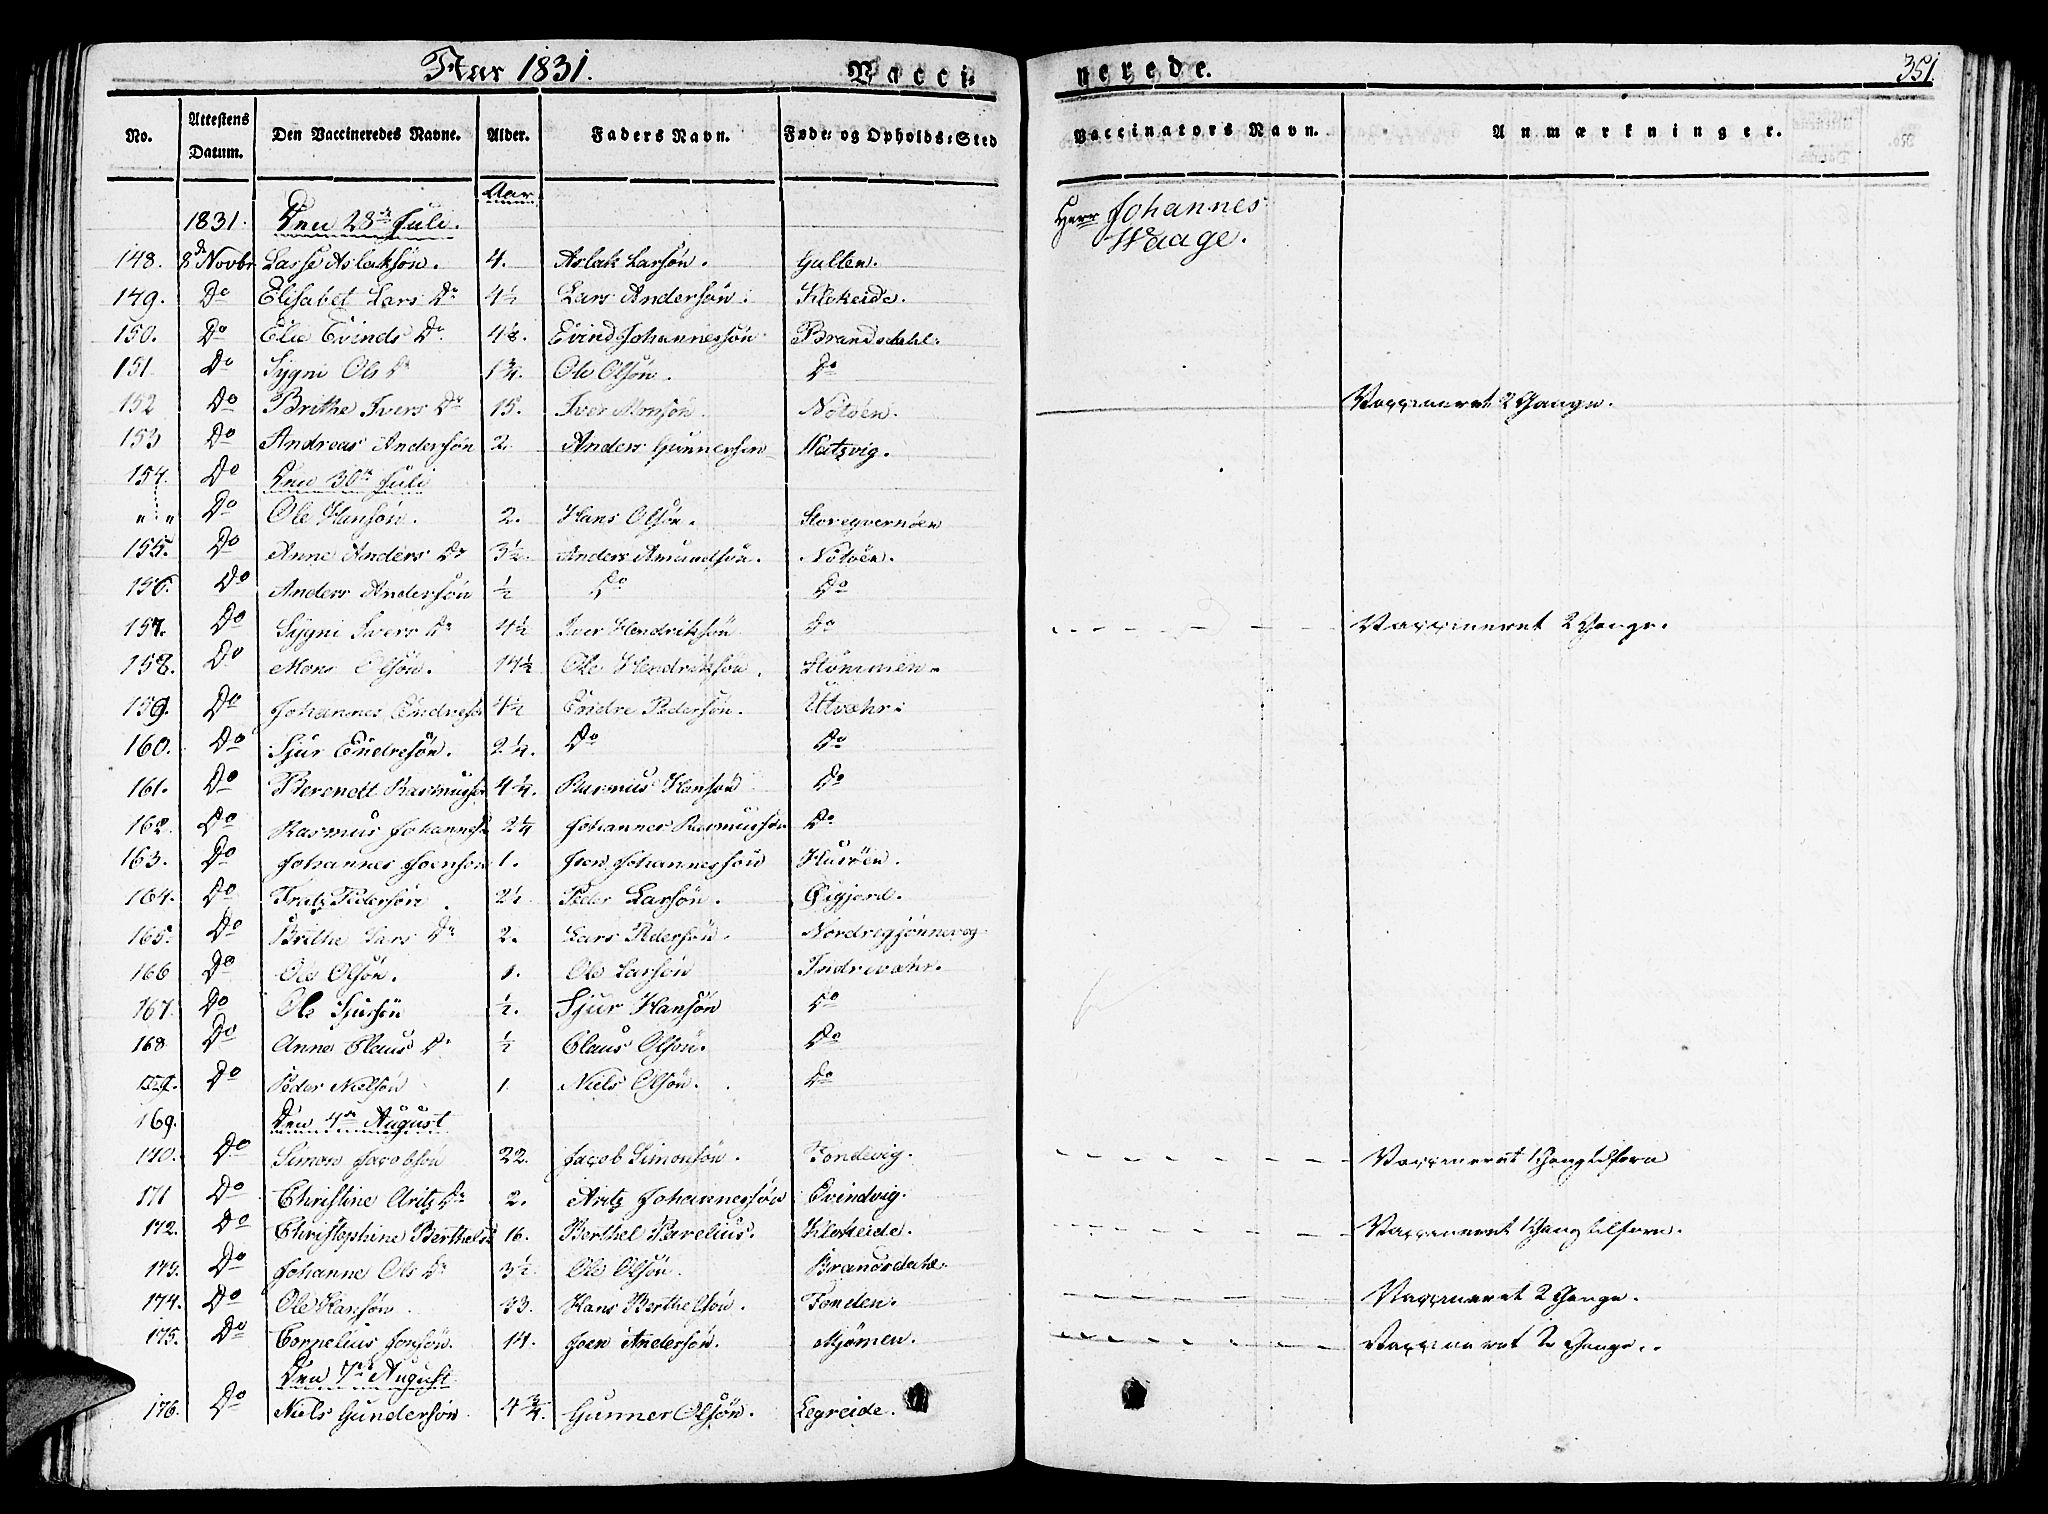 Aar 1831. Vacci-
nerede. 351
No. Attestens Datum. Den Vaccineredes Navne. Alder. Faders Navn. Føde- og Opholds-Sted Vaccinators Navn. Anmærkninger.
Aar
1831. Den 28de Juli. Herr Johannes
Waage.
148. 8de Novbr Lasse Aslaksøn. 4. Aslak Larsøn. Gulten.
149. Do Elisabet Lars Dr 4½ Lars Andersøn. Klekeide.
150. Do Elie Evinds Dr. Evind Johannessøn Brandsdahl.
151 Do Sygni Ols Dr 1¾. Ole Olsøn. Do
152 Do Brithe Ivers Dr 15. Iver Monsøn. Notøen. Vaxxineret 2 Gange.
153 Do Andreas Andersøn 2. Anders Gunnersøn Natzvig.
154. Do Den 30te Juli
" " Do Ole Hansøn. 2. Hans Olsøn. Storegvernøen
155. Do Anne Anders Dr 3½. Anders Amundsøn. Notøen.
156. Do Anders Andersøn ½ Do Do
157. Do Sygni Ivers Dr 4½ Iver Hendriksøn Do Vaxxineret 2 Gange.
158. Do Mons Olsøn. 14½ Ole Hendriksøn.
159. Do Johannes Endresøn 4½ Endre Pedersøn. Utvæhr.
160. Do Sjur Endresøn. 2¼. Do Do
161. Do Berendt Rasmussøn 4¼. Rasmus Hansøn Do
162. Do Rasmus Johannessø 2¼ Johannes Rasmussøn Do
163. Do Johannes Joensøn 1. Joen Johannessøn Husøen.
164. Do Fratz Pedersøn. Peder Larsøn. Øigjerd.
165. Do Brithe Lars Dr 2. Lars Pedersøn.
166 Do Ole Olsøn. 1. Ole Larsøn Indrevæhr.
167. Do Ole Sjursøn ½. Sjur Hansøn Do
168 Do Anne Claus Dr ½ Claus Olsøn. Do
Do Peder Nielsøn 1. Niels Olsøn. Do
169. Den 4de August
170. Do Simon Jacobsøn 22. Jacob Simonsøn. Tondevig. Vaxxineret 1 Gang tilforn
171 Do Christine Aritz Dr 2. Aritz Johannessøn Evindvig.
172. Do Christophine Berthels 16. Berthel Parelius. Klekeide. Vaxxineret 1 Gang tilforn.
173. Do Johanne Ols Dr 3½. Ole Olsøn. Brandsdahl.
174. Do Ole Hansøn. 33. Hans Berthelsøn. Tonden. Vaxxineret 2 Gange.
175. Do Cornelius Jonsøn. 14. Joen Andersøn. Mjømen. Vaxxineret 2 Gange.
Den 7de August
176. Do Niels Gundersøn. 4¾. Gunner Olsøn. Legreide.